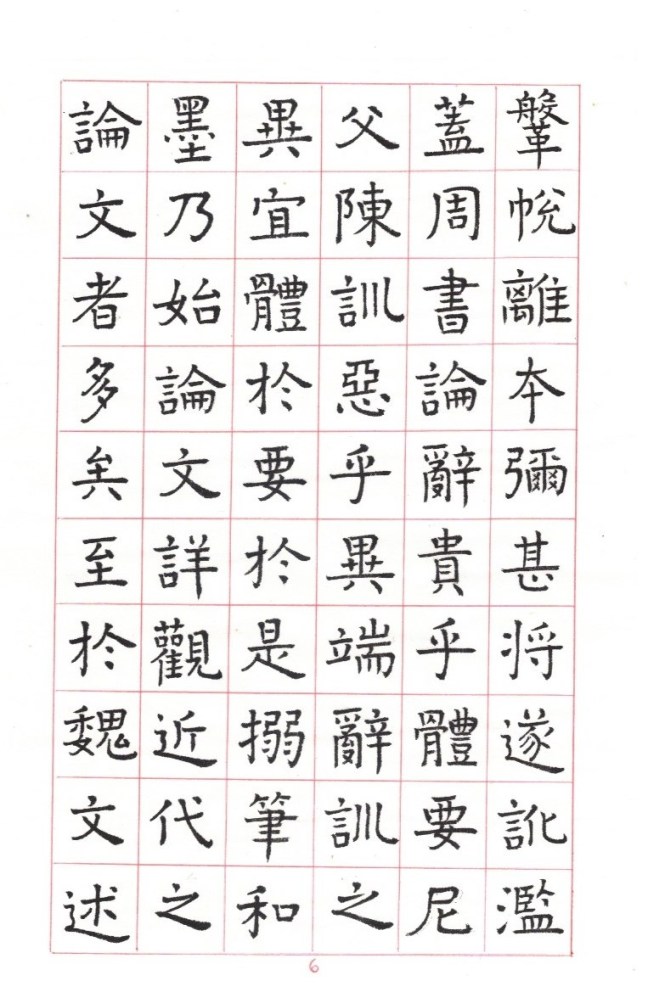 鞶帨離本彌甚將遂訛濫
蓋周書論辭貴乎體要尼
父陳訓惡乎異端辭訓之
異宜體於要於是搦筆和
墨乃始論文詳觀近代之
論文者多矣至於魏文述
6